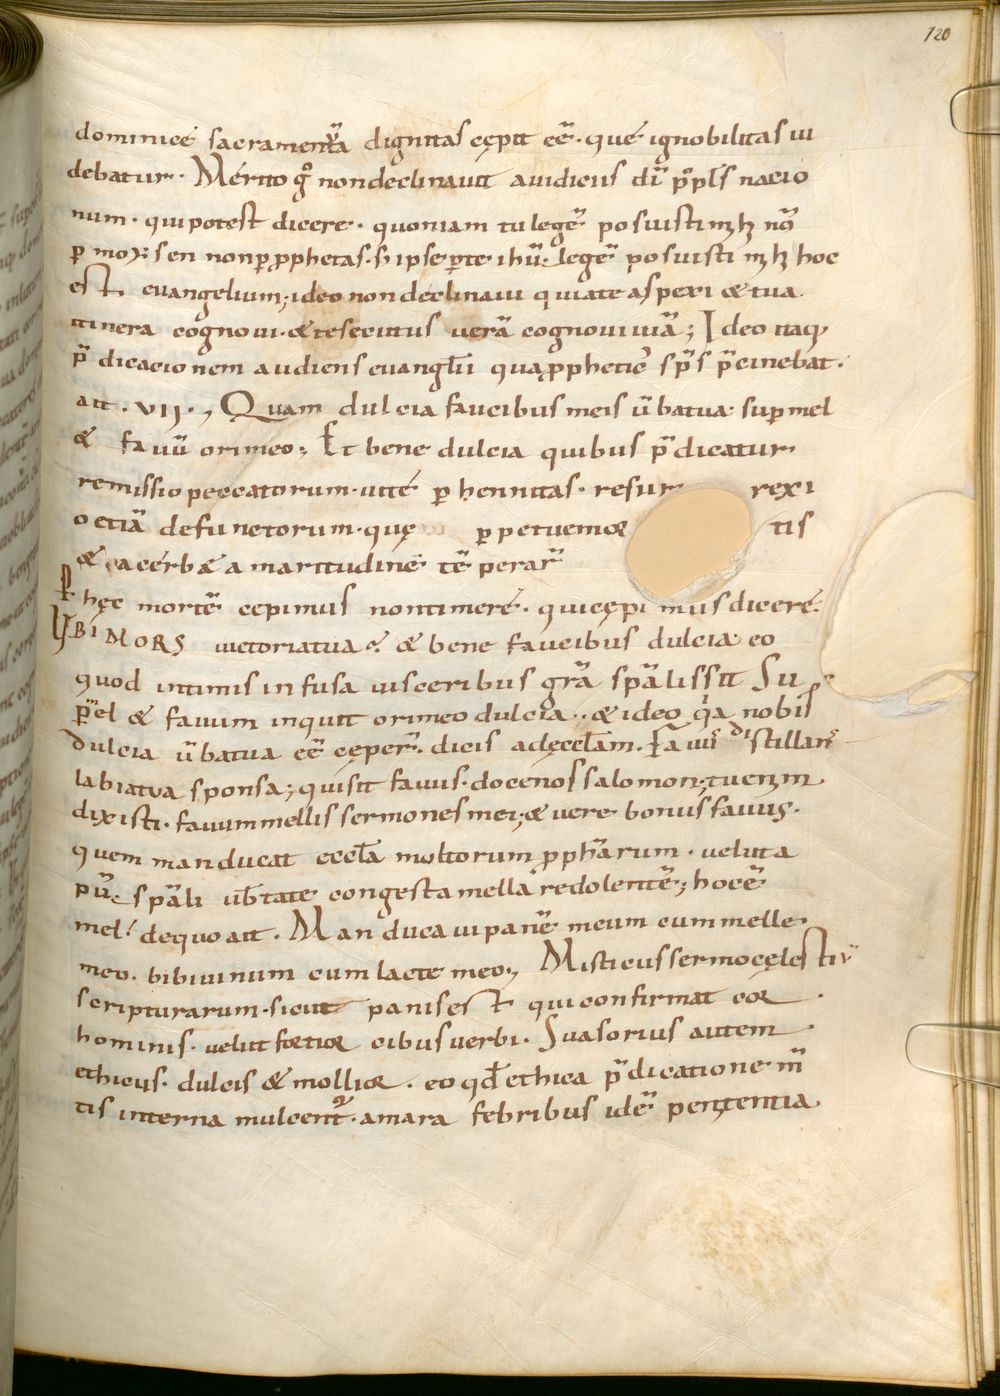 120
dominicé sacramentā dignitas cępit ēē· qué ignobilitas ui
debatur· Mérito ḡo nondeclinauit auidicus dī ppls nacio
num· quipotest dicere· quoniam tu legē posuisti m h nō
p moysen non p pphetas· s ipse p te ihū· legē posuisti m h hoc
est· euangelium; ideo nondeclinaui quiate aspexi & tua
itinera cognoui· & te secutus uerā cognoui uiā; Ideo itaq;
p̄dicacionem audiens euanglii qua pphetic' sps p̄cinebat·
ait· VII·, Quam dulcia faucibus meis ūba tua· sup mel
& fauū ori meo; Et bene dulcia quibus p̄dicatur
remissio peccatorum· uité phennitas· resur rexi
o etiā defunctorum· quę ppetuemor tis
& acérbæ amaritudinē tēperar̄
P hęc mortē cepimus non timeré· qui cępimus diceré·
UBI MORS uictoria tua? & bene faucibus dulcia· eo
quod intimis infusa uisceribus grā spālis sit Su
p mel & fauum inquit ori meo dulcia·· & ideo q̄a nobis
dulcia ūba tua ēē cęper̄· dicis ad ęccłam· Fauū distillan̄
labia tua sponsa; quis it fauus· doce nos salomon; tu enim
dixisti· fauum mellis sermones mei; & vere bonus fauus·
quem manducat eccła moltorum pphārum· velut a
pū· spāli ubtate congesta mella redolentē; hoc ē
mel· de quo ait· Manducaui panē meum cum melle
meo· bibi uinum cum lacte meo·, Misticus sermo cęlestiū
scripturarum· sicut panis est qui confirmat cor
hominis· velut fortior cibus verbi· Suasorius autem
ethicus· dulcis & mollior· eo qđ ethica p̄dicatione m̄
tis interna mulcent'· amara febribus idē penętentia